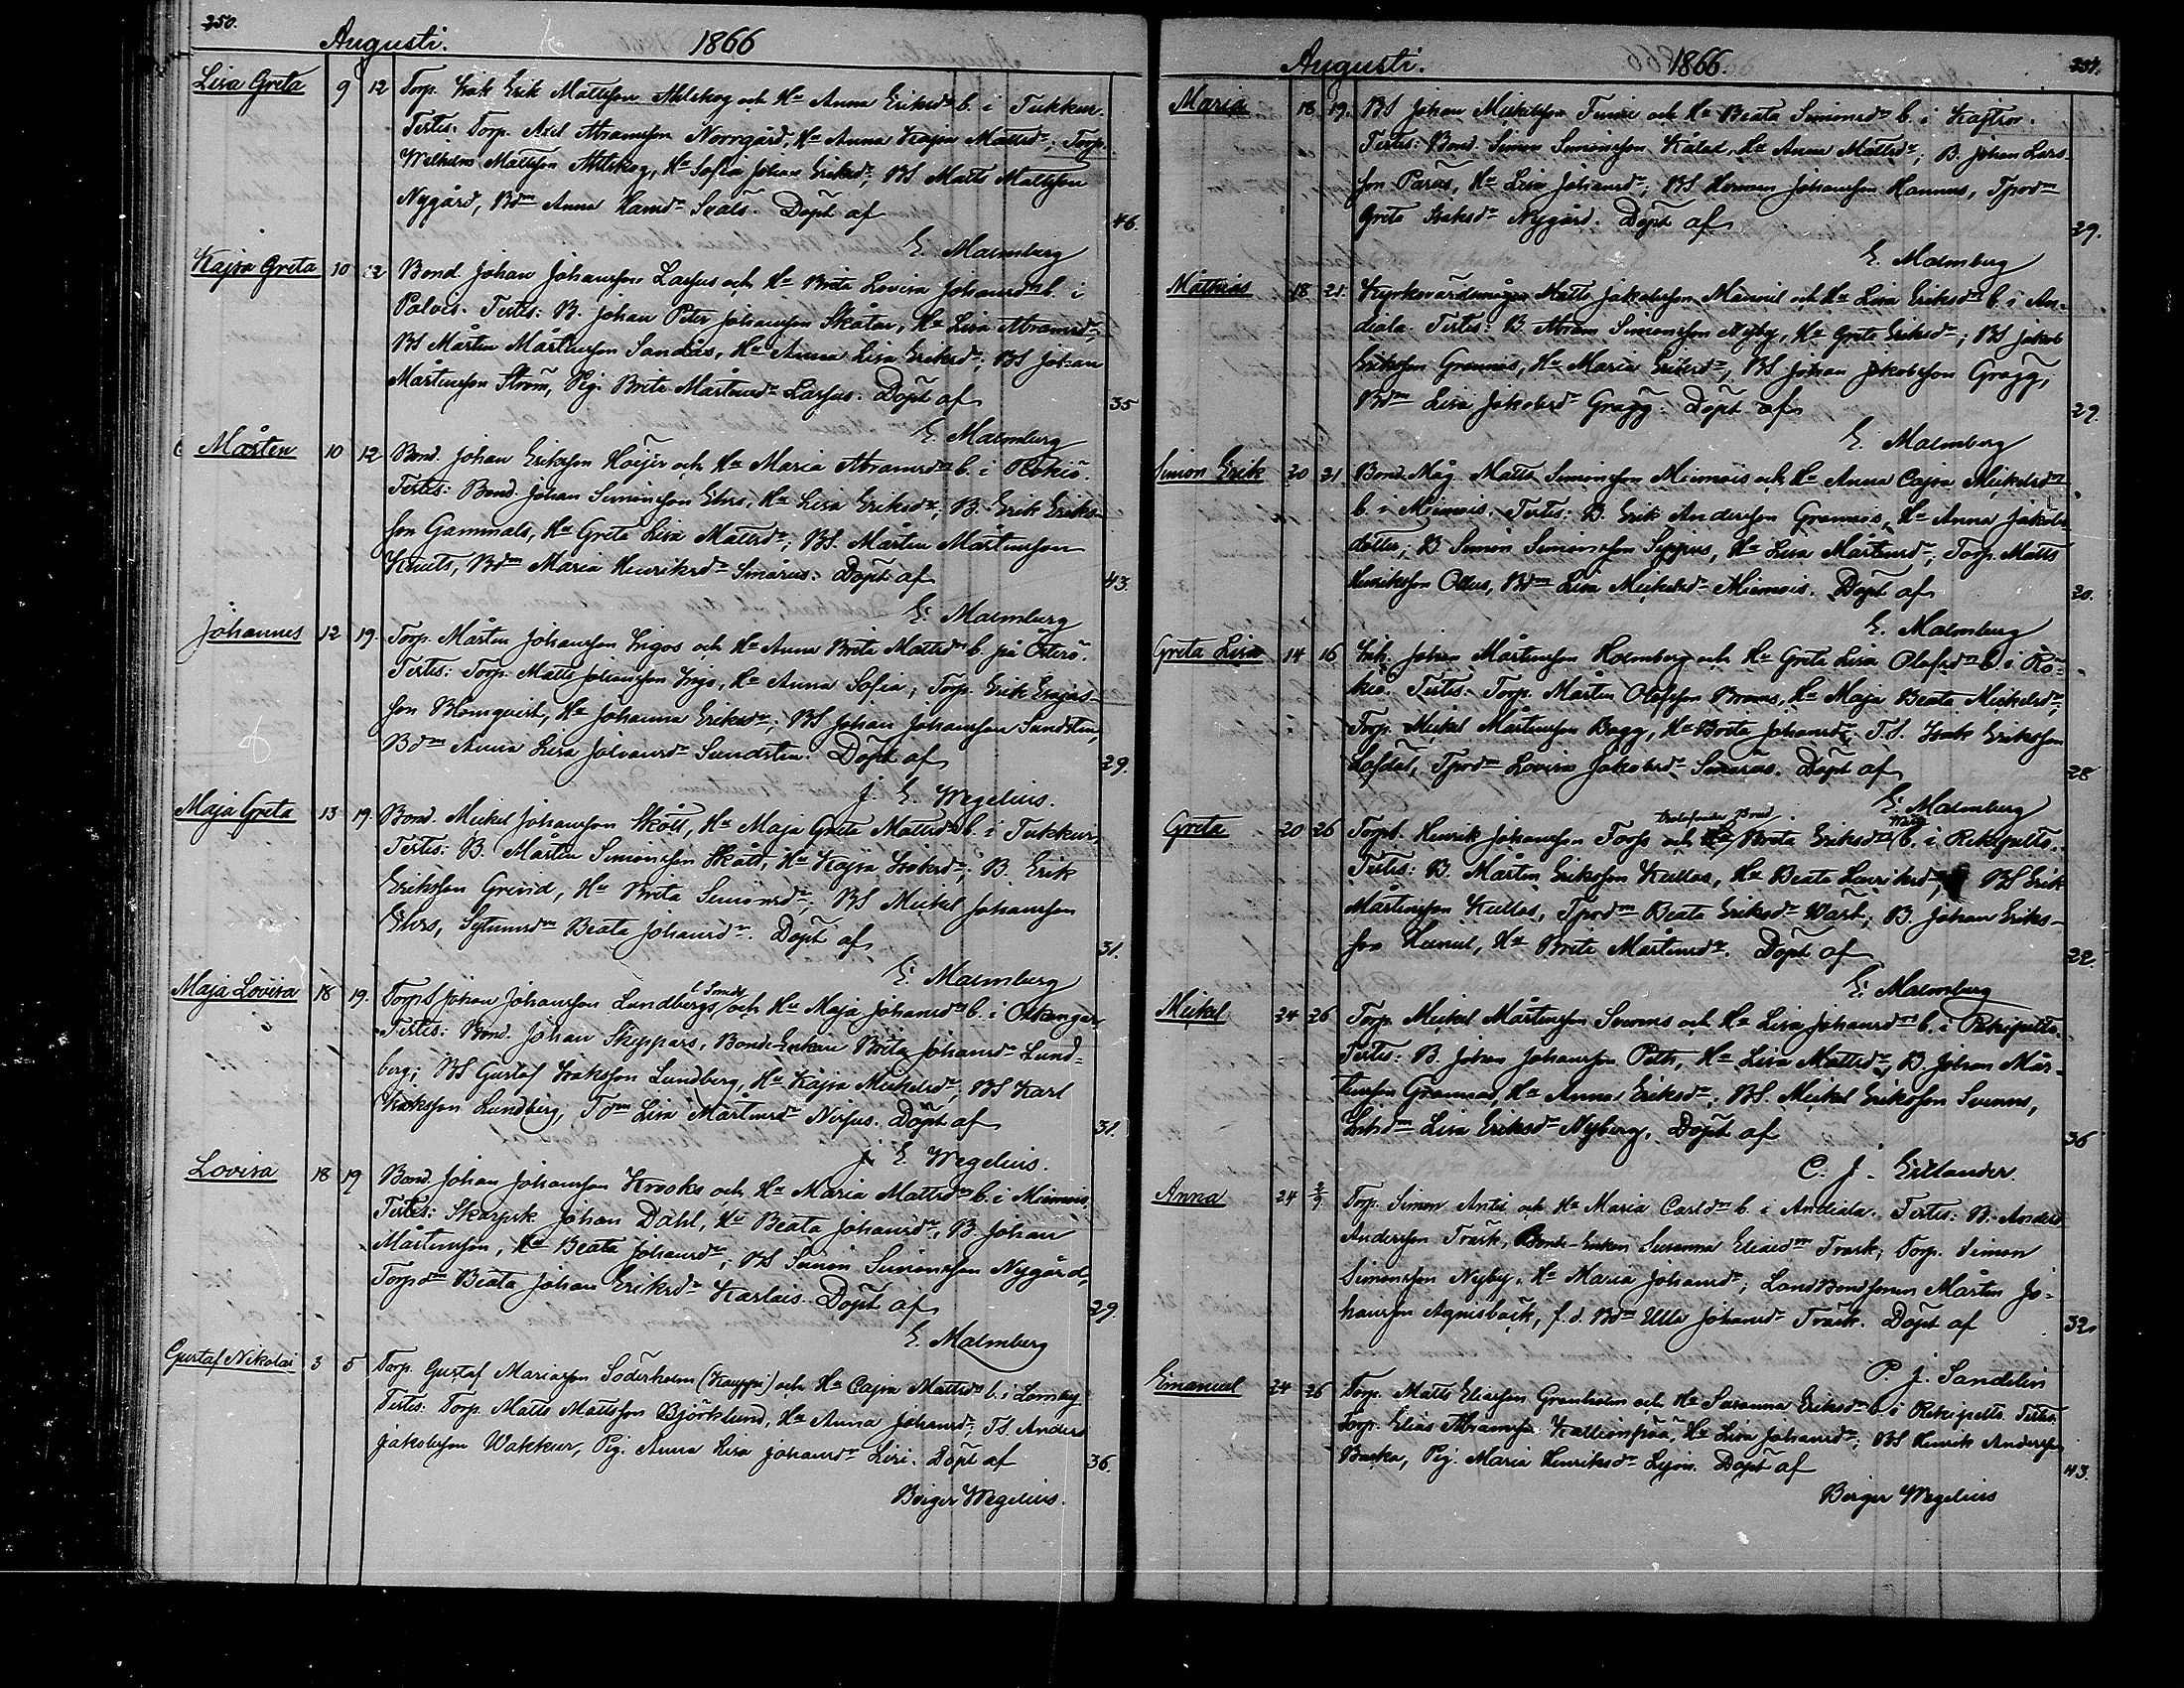 250.
Augusti. 1866
Lisa Greta 9 12 Torp. Isak Erik Mattsson Ahlskog och Hu Anna Eriksdr b. i Tukkur.
Testes: Torp. Axel Abramsson Norrgård, Hu Anna Kajsa Mattsdr; Torp.
Wilhelm Mattsson Ahlskog, Hu Sofia Johan Eriksdr; BS Matts Mattsson
Nygård, Bdm Anna Hansdr Seäls. Döpt af 46.
E. Malmberg
Kajsa Greta 10 12 Bond. Johan Johansson Lassus och Hu Brita Lovisa Johansdr b. i
Palvis. Testes: B. Johan Peter Johansson Skatar, Hu Lisa Abramsdr;
BS Mårten Mårtensson Sandås, Hu Anna Lisa Eriksdr; BS Johan
Mårtensson Ström, Pig. Brita Mårtensdr Lassus. Döpt af 35
E. Malmberg
Mårten 10 12 Bond. Johan Eriksson Höijer och Hu Maria Abramsdr b. i Rökiö.
Testes: Bond. Johan Simonsson Ehrs, Hu Lisa Eriksdr; B. Erik Eriks-
son Gammals, Hu Greta Lisa Mattsdr; BS. Mårten Mårtensson
Knuts, Bdm Maria Henriksdr Smårus. Döpt af 43.
E. Malmberg
Johannes 12 19. Torp. Mårten Johansson Ingos och Hu Anna Brita Mattsdr b. på Österö.
Testes: Torp. Matts Johansson Ingo, Hu Anna Sofia; Torp. Erik Esaias-
son Blomqvist, Hu Johanna Eriksdr; BS Johan Johansson Sundsten,
Bdm Anna Lisa Johansdr Sundsten. Döpt af 29.
J. E. Wegelius.
Maja Greta 13 19 Bond. Mickel Johansson Skått, Hu Maja Greta Mattsdr b. i Tukkur.
Testes: B. Mårten Simonsson Skått, Hu Kajsa Isaksdr; B. Erik
Eriksson Grind, Hu Brita Simonsdr; BS Mickel Johansson
Ehrs, Sytnmdm Beata Johansdr. Döpt af 31.
E. Malmberg
Maja Lovisa 18 19. TorpS Johan Johansson Lundbergs och Hu Maja Johansdr b. i Oxkangar.
Testes: Bond. Johan Skeppars, Bonde-Enkan Brita Johansdr Lund-
berg; BS Gustaf Isaksson Lundberg, Hu Kajsa Mickelsdr; BS Karl
Isaksson Lundberg, Tdm Lisa Mårtensdr Nissus. Döpt af 31.
J. E. Wegelius.
Lovisa 18 19 Bond. Johan Johansson Krooks och Hu Maria Mattsdr b. i Miemois.
Testes: Skarpsk Johan Dahl, Hu Beata Johansdr, B. Johan
Mårtensson, Hu Beata Johansdr; BS Simon Simonsson Nygård,
Torpdm Beata Johan Eriksdr Karlais. Döpt af 29.
E. Malmberg
Gustaf Nikolai 3 5 Torp. Gustaf Mariasson Söderholm (Kauppi) och Hu Cajsa Mattsdr b. i Lomby
Testes: Torp. Matts Mattsson Björklund, Hu Anna Johansdr, TS. Anders
Jakobsson Wakkur, Pig. Anna Lisa Johansdr Liri. Döpt af 36.
Birger Wegelius.
Augusti. 1866. 251.
Maria 18 19. BS Johan Mickelsson Finne och Hu Beata Simonsdr b. i Kaftror.
Testes: Bond. Simon Simonsson Kålad, Hu Anna Mattsdr; B. Johan Lars-
son Parus, Hu Lisa Johansdr; BS Herman Johansson Hannus, Tpodm
Greta Isaksdr Nygård. Döpt af 29.
E. Malmberg
Mathias 18 21. Kyrkovärdsmågen Matts Jakobsson Mannil och Hu Lisa Eriksdr b. i An-
diala. Testes: B. Abram Simonsson Nyby, Hu Greta Eriksdr; BS Jakob
Eriksson Gramäs, Hu Maria Eriksdr, BS Johan Jakobsson Gragg,
Bdm Lisa Jakobsdr Gragg. Döpt af 29.
E. Malmberg
Simon Erik 20 21 Bond.Måg Matts Simonsson Miemois och Hu Anna Cajsa Mickelsdr
b. i Miemois. Testes: B. Erik Andersson Gramäs, Hu Anna Jakobs
dotter; B. Simon Simonsson Seppus, Hu Lisa Mårtensdr; Torp. Matts
Henriksson Ollus, Bdm Lisa Mickelsdr Miemois. Döpt af 20.
E. Malmberg
Greta Lisa 14 16 Inh. Johan Mårtensson Holmberg och Hu Greta Lisa Olofsdr b. i Rö-
kiö. Testes: Torp. Mårten Olofsson Bronas, Hu Maja Beata Mickelsdr;
Torp. Mickel Mårtensson Bagg, Hu Brita Johansdr; T.S. Isak Eriksson
Lofdal, Tpodm Lovisa Jakobsdr Smårus. Döpt af 28
E. Malmberg
Greta 20 26 Torpd. Henrik Johansson Forss och Brita Eriksdr b. i Rekipelto.
Testes: B. Mårten Eriksson Kullas, Hu Beata Henriksd; BS Erik
Mårtensson Kullas, Tpodm Beata Eriksdr Wart; B. Johan Eriks-
son Heinul, Hu Brita Mårtensdr. Döpt af 22.
E. Malmberg
Mickel 24 26 Torp. Mickel Mårtensson Svenns och Hu Lisa Johansdr b. i Rekipelto.
Testes: B. Johan Johansson Peth, Hu Lisa Mattsdr, B. Johan Mår-
tensson Gramäs, Hu Anna Eriksdr; BS. Mickel Eriksson Svenns,
Inhdm Lisa Eriksdr Nyberg. Döpt af 36
C. J. Estlander.
Anna 24 2/9 Torp. Simon Antil och Hu Maria Carlsdr b. i Andiala. Testes: B. Anders
Andersson Trask, Bonde-Enkan Susanna Eliaedm Trask; Torp. Simon
Simonsson Nyby, Hu Maria Johansdr; LandBondsonen Mårten Jo-
hansson Agnisbäck, f.d. Bdm Ulla Johansdr Träsk. Döpt af 32.
P. J. Sandelin
Emanuel 24 26 Torp. Matts Eliasson Granholm och Hu Susanna Eriksdr b. i Rekipelto. Testes:
Torp. Elias Abramsson Kallionpää, Hu Lisa Johansdr; BS Henrik Andersson
Backa, Pig. Maria Henriksdr Lyön. Döpt af 43.
Berger Wegelius